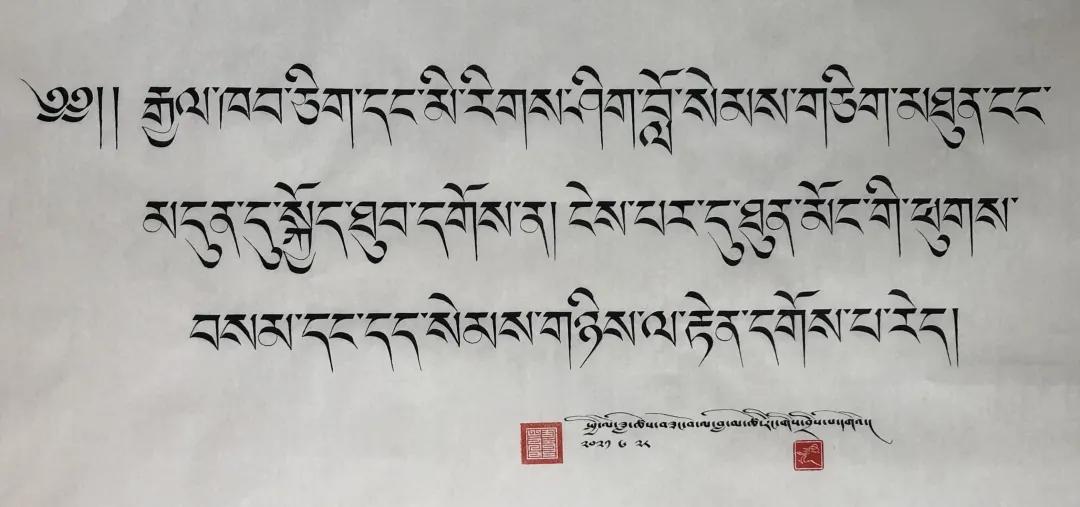 ༄༅།། རྒྱལ་ཁབ་ཅིག་དང་མི་རིགས་ཤིག་བློ་སེམས་གཅིག་མཐུན་ངང་
མདུན་དུ་སྐྱོད་ཐུབ་དགོས་ན། ངེས་པར་དུ་ཐུན་མོང་གི་ཕུགས་
བསམ་དང་དད་སེམས་གཉིས་ལ་རྟེན་དགོས་པ་རེད།
༢༠༢༡ ༦ ༢༨